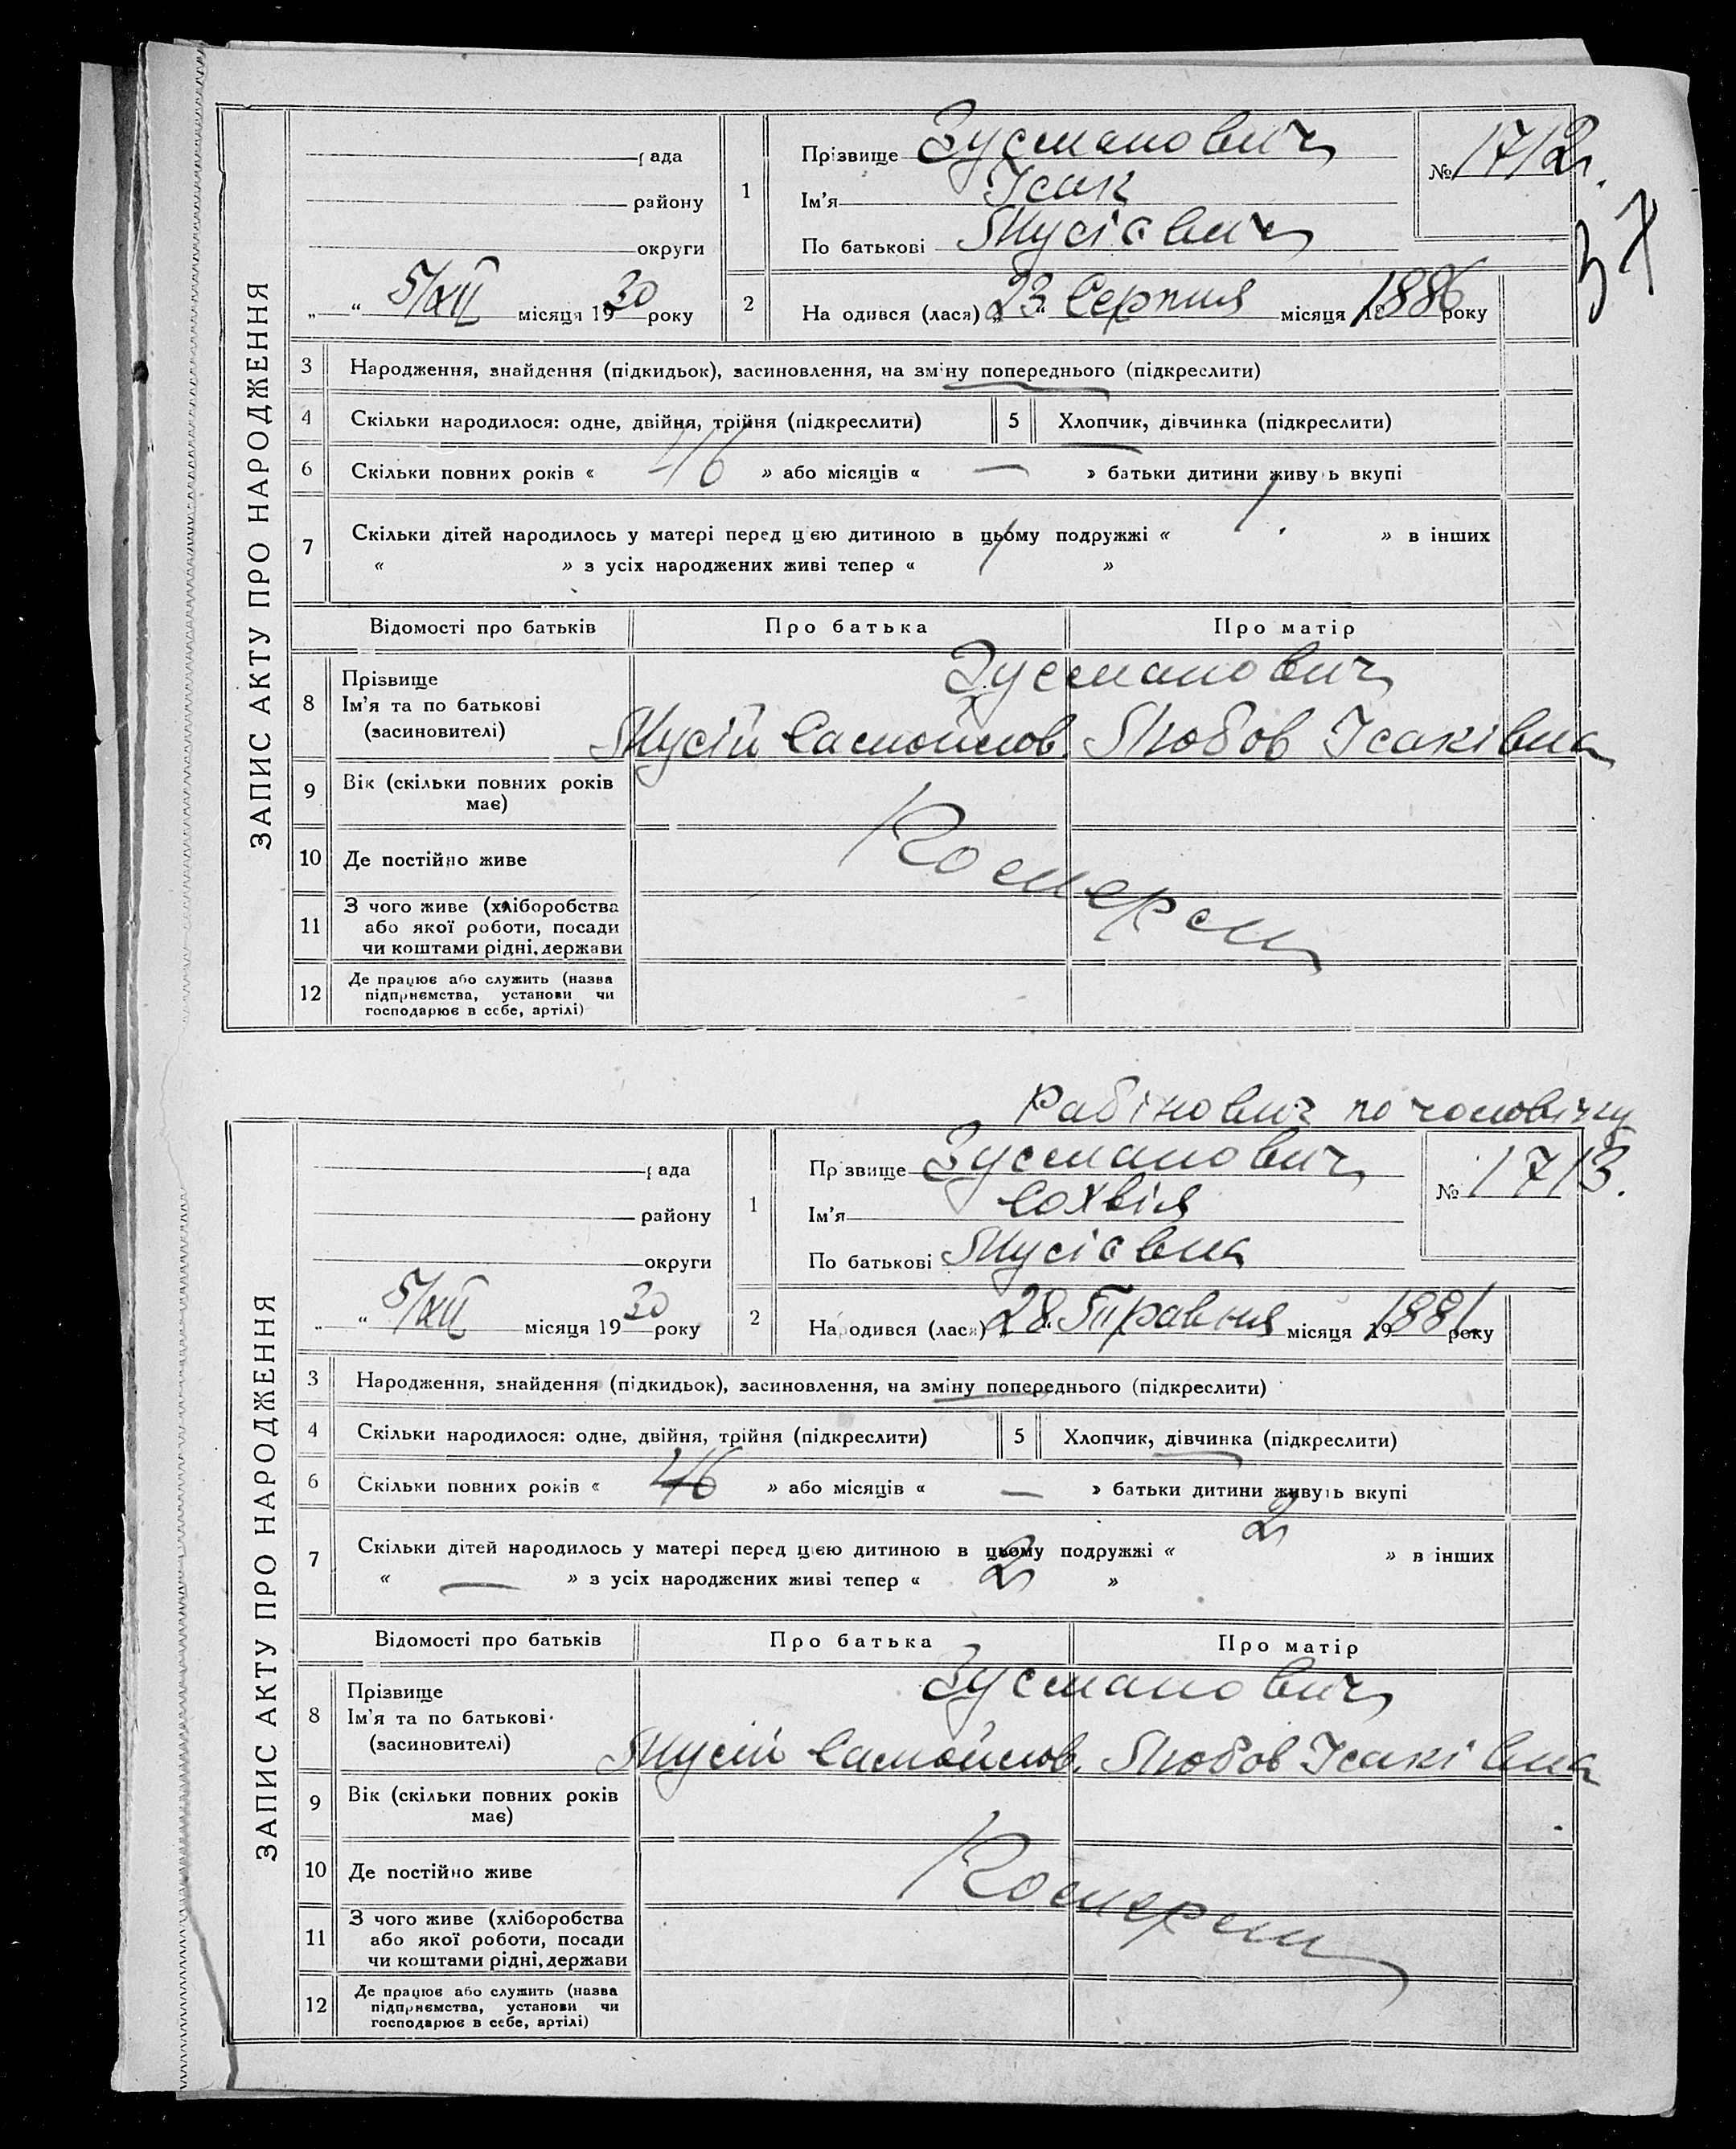 ЗАПИС АКТУ ПРО НАРОДЖЕННЯ
рада
району
округи
„ “ 5/XII місяця 1930 року
1
Прізвище Зусманович
Ім'я Ісак
По батькові Мусієвич
№ 1712.
37
2
На одився (лася) „23“ Серпня місяця 1886 року
3 Народження, знайдення (підкидьок), засиновлення, на зміну попереднього (підкреслити)
4 Скільки народилося: одне, двійня, трійня (підкреслити) 5 Хлопчик, дівчинка (підкреслити)
6 Скільки повних років « 46 » або місяців « — » батьки дитини живуть вкупі
7 Скільки дітей народилось у матері перед цією дитиною в цьому подружжі « 1. » в інших
« » з усіх народжених живі тепер « 1 »
Відомості про батьків Про батька Про матір
8 Прізвище
Ім'я та по батькові
(засиновителі)
Зусманович
Мусій Самойлов. Любов Ісаківна
9 Вік (скільки повних років
має)
10 Де постійно живе
11 З чого живе (хліборобства
або якої роботи, посади
чи коштами рідні, держави
12 Де працює або служить (назва
підприємства, установи чи
господарює в себе, артілі)
ЗАПИС АКТУ ПРО НАРОДЖЕННЯ
Рабінович по чоловічку
рада
району
округи
„ “ 5/XII місяця 1930 року
1
Прізвище Зусманович
Ім'я Софія
По батькові Мусієвна
№ 1713.
2
Народився (лася) „28“ Травня місяця 1881 року
3 Народження, знайдення (підкидьок), засиновлення, на зміну попереднього (підкреслити)
4 Скільки народилося: одне, двійня, трійня (підкреслити) 5 Хлопчик, дівчинка (підкреслити)
6 Скільки повних років « 46 » або місяців « — » батьки дитини живуть вкупі
7 Скільки дітей народилось у матері перед цією дитиною в цьому подружжі « 2 » в інших
« — » з усіх народжених живі тепер « 2 »
Відомості про батьків Про батька Про матір
8 Прізвище
Ім'я та по батькові
(засиновителі)
Зусманович
Мусій Самойлов. Любов Ісаківна
9 Вік (скільки повних років
має)
10 Де постійно живе
11 З чого живе (хліборобства
або якої роботи, посади
чи коштами рідні, держави
12 Де працює або служить (назва
підприємства, установи чи
господарює в себе, артілі)